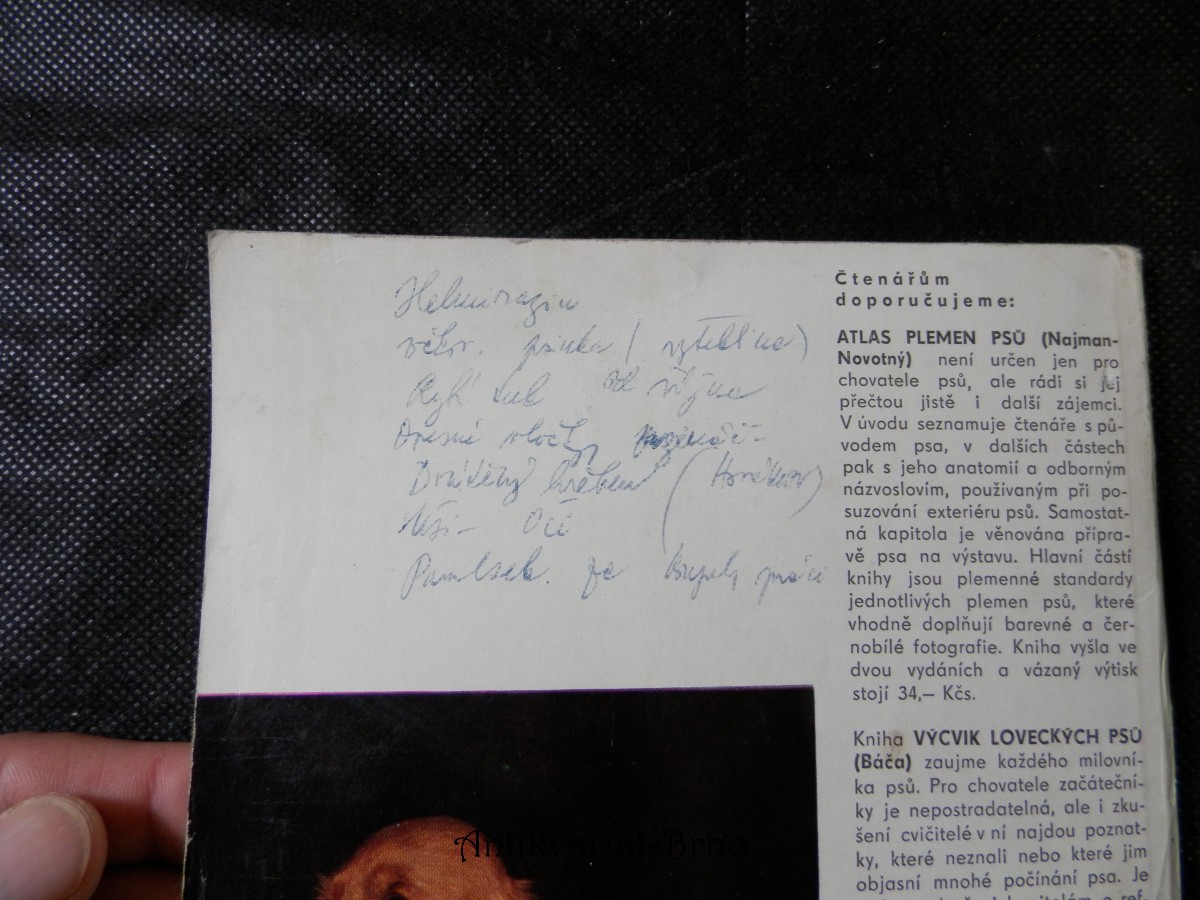 Helmirazin
očkov. psinka ( vzteklina )
Rybí tuk
Ovesné vločky
Drátěný hřeben (
Uši – Oči
Pamlsek. za
Čtenářům
doporučujeme:
ATLAS PLEMEN PSŮ (Najman-
Novotný) není určen jen pro
chovatele psů, ale rádi si jej
přečtou jistě i další zájemci.
V úvodu seznamuje čtenáře s pů-
vodem psa, v dalších částech
pak s jeho anatomií a odborným
názvoslovím, používaným při po-
suzování exteriéru psů. Samostat-
ná kapitola je věnována přípra-
vě psa na výstavu. Hlavní částí
knihy jsou plemenné standardy
jednotlivých plemen psů, které
vhodně doplňují barevné a čer-
nobílé fotografie. Kniha vyšla ve
dvou vydáních a vázaný výtisk
stojí 34,— Kčs.
Kniha VÝCVIK LOVECKÝCH PSŮ
(Báča) zaujme každého milovní-
ka psů. Pro chovatele začáteční-
ky je nepostradatelná, ale i zku-
šení cvičitelé v ní najdou poznat-
ky, které neznali nebo které jim
objasní mnohé počínání psa. Je
Antikvariat-Brno